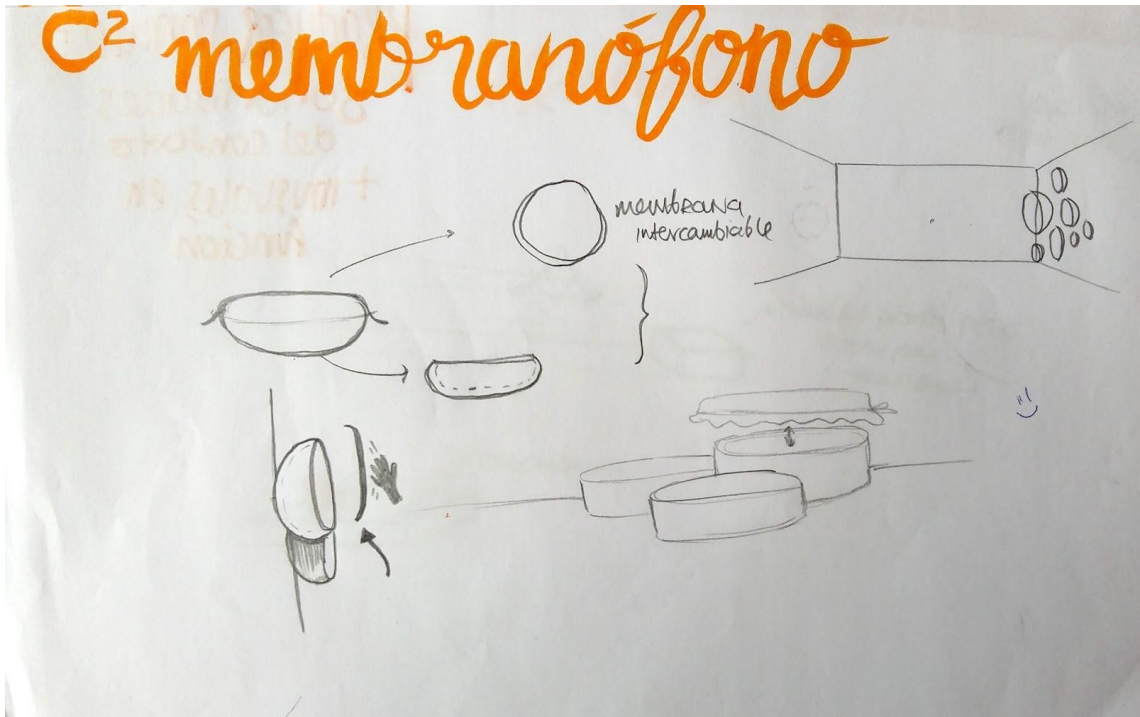 C² membranófono
membrana
intercambiable